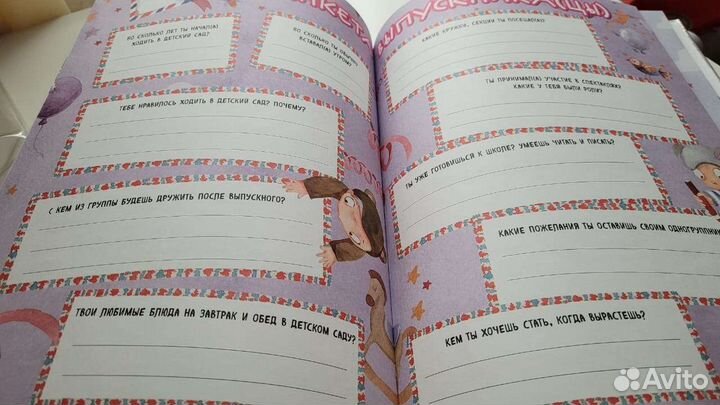 АНКЕТА
ВО СКОЛЬКО ЛЕТ ТЫ НАЧАЛ(А)
ХОДИТЬ В ДЕТСКИЙ САД?
ВО СКОЛЬКО ТЫ ОБЫЧНО
ВСТАВАЛ(А) УТРОМ?
ТЕБЕ НРАВИЛОСЬ ХОДИТЬ В ДЕТСКИЙ САД? ПОЧЕМУ?
С КЕМ ИЗ ГРУППЫ БУДЕШЬ ДРУЖИТЬ ПОСЛЕ ВЫПУСКНОГО?
ТВОИ ЛЮБИМЫЕ БЛЮДА НА ЗАВТРАК И ОБЕД В ДЕТСКОМ САДУ?
КАКИЕ КРУЖКИ, СЕКЦИИ ТЫ ПОСЕЩАЛ(А)?
ТЫ ПРИНИМАЛ(А) УЧАСТИЕ В СПЕКТАКЛЯХ?
КАКИЕ У ТЕБЯ БЫЛИ РОЛИ?
ТЫ УЖЕ ГОТОВИШЬСЯ К ШКОЛЕ? УМЕЕШЬ ЧИТАТЬ И ПИСАТЬ?
КАКИЕ ПОЖЕЛАНИЯ ТЫ ОСТАВИШЬ СВОИМ
КЕМ ТЫ ХОЧЕШЬ СТАТЬ, КОГДА ВЫРАСТЕШЬ?
Avito